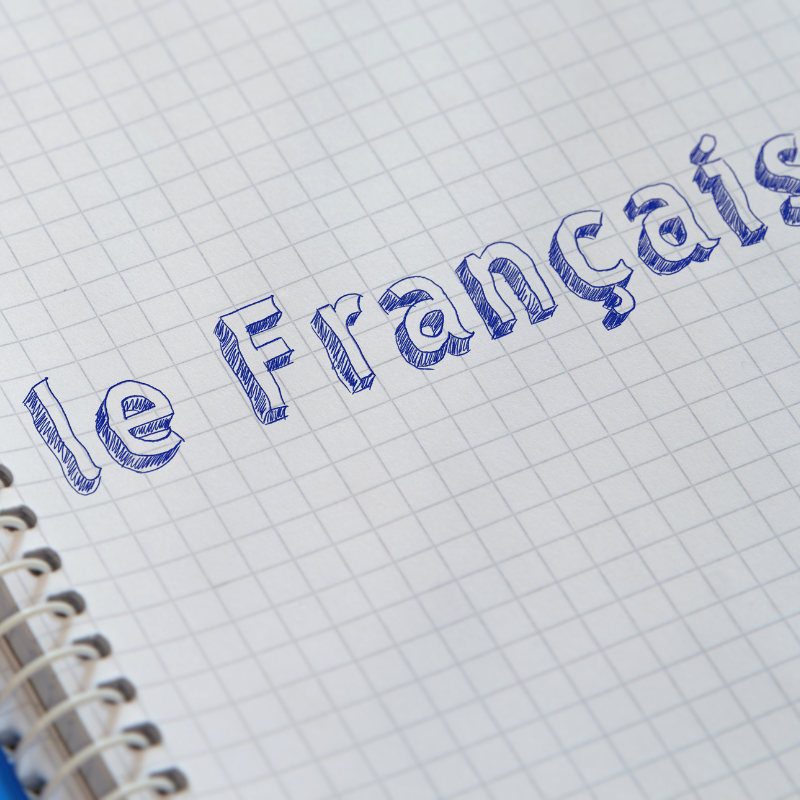 le Français